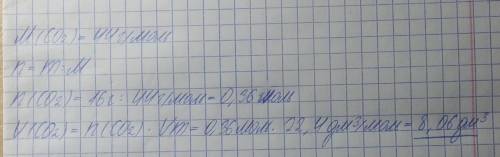 M(CO₂) = 44 г/моль
n = m : M
n(CO₂) = 16 г : 44 г/моль = 0,36 моль
V(CO₂) = n(CO₂) · Vm = 0,36 моль · 22,4 дм³/моль = 8,06 дм³